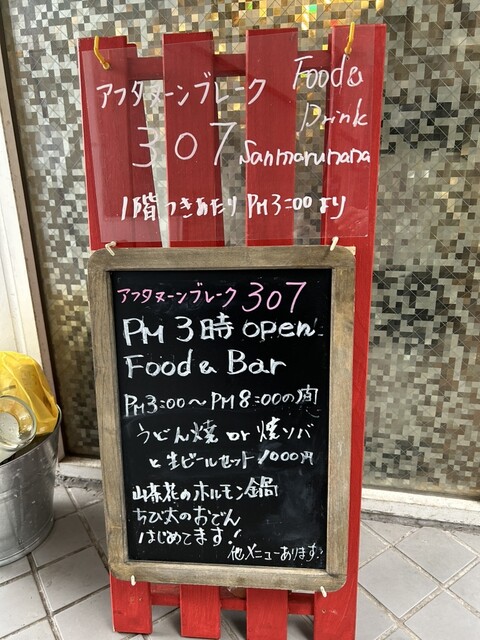 アフタヌーンブレーク
Food &
Drink
307 Sanmarunana
1階つきあたり PM3:00より
アフタヌーンブレーク 307
PM 3時 open
Food & Bar
PM3:00〜PM8:00の間
うどん焼 or 焼ソバ
と生ビールセット 1000円
山茶花のホルモン鍋
ちび太のおでん
はじめてます!
他メニューあります!